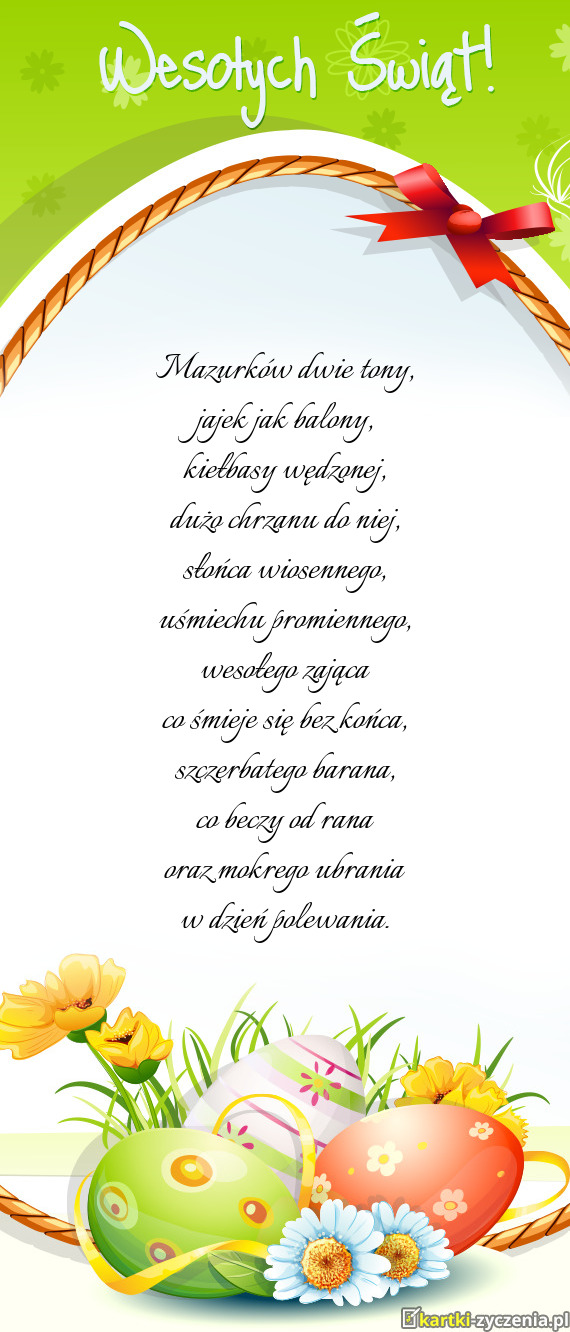 Wesołych Świąt!
Mazurków dwie tony,
jajek jak balony,
kiełbasy wędzonej,
dużo chrzanu do niej,
słońca wiosennego,
uśmiechu promiennego,
wesołego zająca
co śmieje się bez końca,
szczerbatego barana,
co beczy od rana
oraz mokrego ubrania
w dzień polewania.
kartki-zyczenia.pl